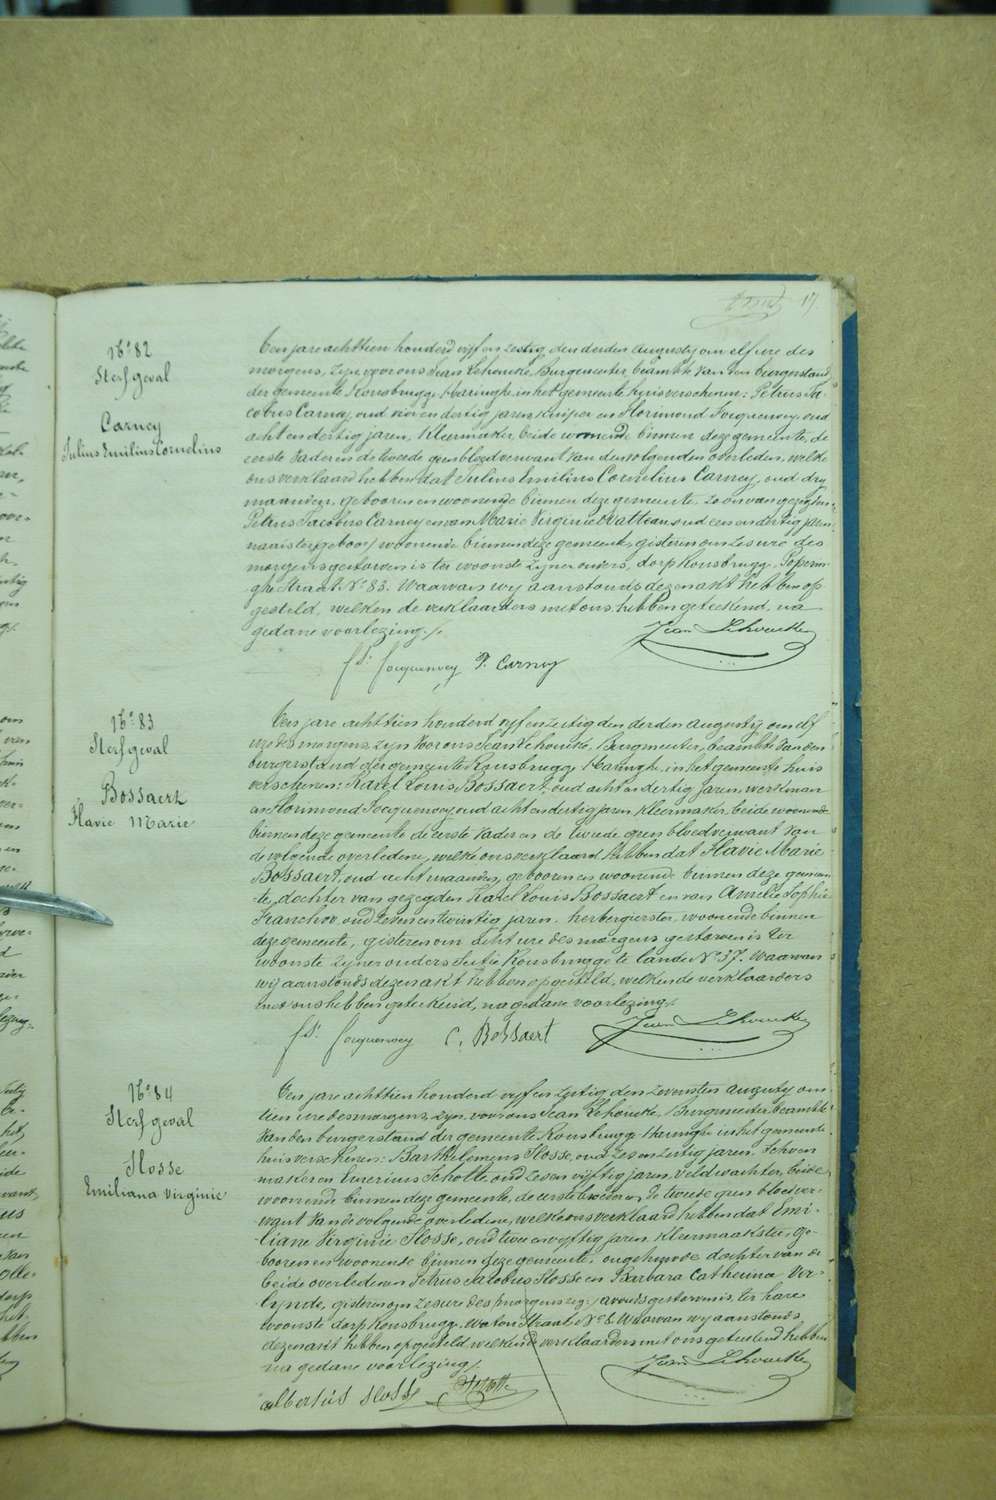 17
N° 82
Sterfgeval
Carney
Julius Emilius Cornelius
Ten jare achttien honderd vijf en zestig, den derden Augusty om elf ure des
morgens, zijn voor ons Jean Lehoucke, Burgmeester beambte van den burgerstand
der gemeente Rousbrugge-Haringhe, in het gemeentehuis verschenen: Petrus Ja-
cobus Carney, oud en dertig jaren, kuiper en Florimond Jocquenvey, oud
acht en dertig jaren, kleermaker, beide woonende binnen deze gemeente, de
eerste vader en de tweede geen bloedverwant van den volgenden overleden, welke
ons verklaard hebben dat Julius Emilius Cornelius Carney, oud dry
maanden, gebooren en woonende binnen deze gemeente, zoon van gezegden
Petrus Jacobus Carney en van Marie Virginie Watteau, oud een en dertig jaren,
naaister, woonende binnen deze gemeente, gisteren om zes ure des
morgens gestorven is ter woonste zijner ouders, dorp Rousbrugge, Poperin-
ghe straat N° 83. Waarvan wij aanstonds dezen akt hebben op
gesteld, welken de verklaarders met ons hebben geteekend, na
gedane voorlezing./.
Jean Lehoucke
fd. Jocquenvey P. Carney
N° 83
Sterfgeval
Bossaert
Flavie Marie
Ten jare achttien honderd vijf en zestig den derden Augusty om elf
ure des morgens, zijn voor ons Jean Lehoucke, Burgmeester, beambte van den
burgerstand der gemeente Rousbrugge-Haringhe, in het gemeente huis
verschenen: Karel Louis Bossaert, oud acht en dertig jaren, werkman
en Florimond Jocquenvey, oud acht en dertig jaren, kleermaker, beide woonende
binnen deze gemeente de eerste vader en de tweede geen bloedverwant van
de volgende overledene, welke ons verklaard hebben dat Flavie Marie
Bossaert, oud acht maanden, gebooren en woonende binnen deze gemeen-
te, dochter van gezegden Karel Louis Bossaert en van Amelie Sophie
Franchoo, oud zeven en twintig jaren, herbergierster, woonende binnen
deze gemeente, gisteren om acht ure des morgens gestorven is ter
woonste zijner ouders Sectie Rousbrugge te lande N° 37. Waarvan
wij aanstonds dezen akt hebben opgesteld, welken de verklaarders
met ons hebben geteekend, na gedane voorlezing./.
fd. Jocquenvey C. Bossaert Jean Lehoucke
N° 84
Sterfgeval
Slosse
Emiliana Virginie
Ten jare achttien honderd vijf en zestig, den zevensten Augusty om
tien ure des morgens, zijn voor ons Jean Lehoucke, Burgmeester beambte
van den burgerstand der gemeente Rousbrugge-Haringhe in het gemeente
huis verschenen: Barthelemeus Slosse, oud zes en zestig jaren, schoen
maker en Liverius Scholle, oud zes en vijftig jaren, veldwachter, beide
woonende binnen deze gemeente, de eerste broeder en de tweede geen bloedver-
want van de volgende overledene, welke ons verklaard hebben dat Emi-
liane Virginie Slosse, oud twee en vijftig jaren, kleermaakster, ge-
booren en woonende binnen deze gemeente, ongehuwde dochter van de
beide overledenen Petrus Jacobus Slosse en Barbara Catherina Ver-
lynde, gisteren om zes ure des morgens avonds gestorven is, ter hare
woonste dorp Rousbrugge, Waton straat N° 6. Waarvan wij aanstonds
dezen akt hebben opgesteld, welken de verklaarders met ons geteekend hebben
na gedane voorlezing./.
Jean Lehoucke
albertus Slosse